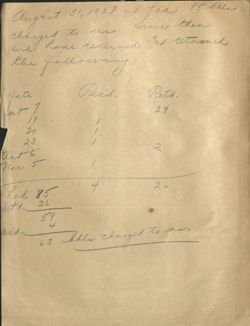 August 31, 1929 we had 85 bbls
charged to us. Since then
we have received and returned
the following.
Date Recd. Retd.
7 1 24
19 1
20 1
23 1
Oct 6 2
Nov 5 1
4 26
Had 85
Ret'd 26
59
4
63 bbls. charged to us.